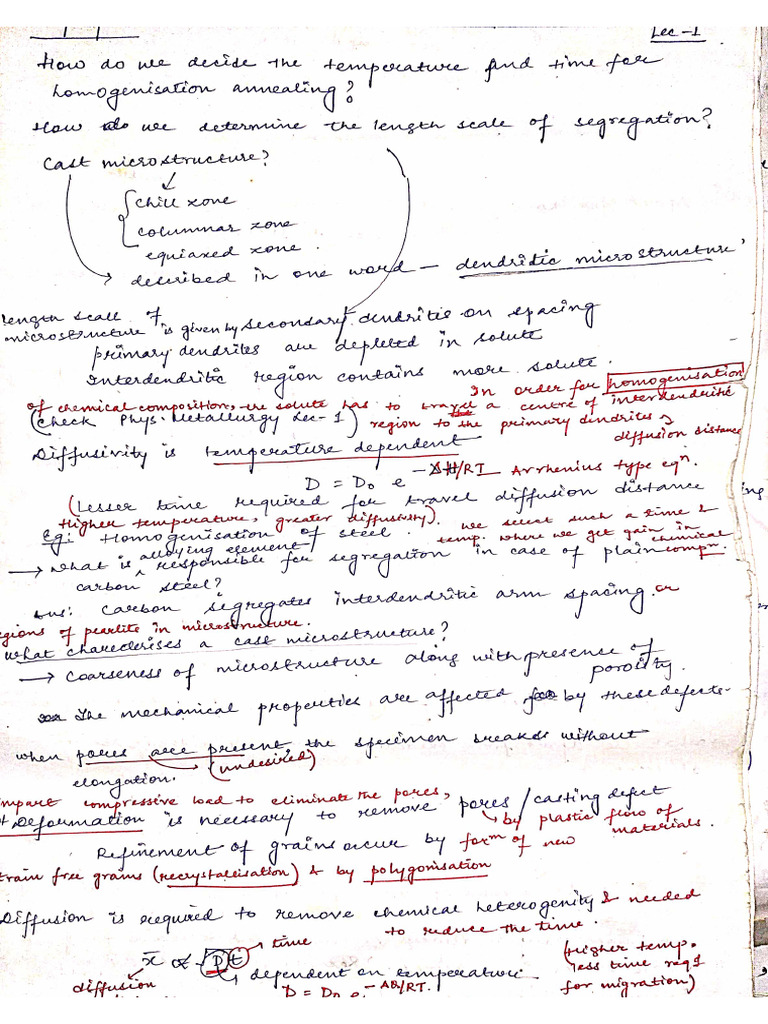 Lec-1
How do we decide the temperature and time for
homogenisation annealing?
How do we determine the length scale of segregation?
Cast microstructure?
chill zone
columnar zone
equiaxed zone.
described in one word - dendritic microstructure
length scale of
microstructure is given by secondary dendritic on spacing
primary dendrites are depleted in solute
Interdendritic region contains more solute.
In order for homogenisation
of chemical composition, the solute has to travel a centre of interdendritic
(Check Phys. Metallurgy Lec-1) region to the primary dendrites
diffusion distance
Diffusivity is temperature dependent
D = D0 e -ΔH/RT Arrhenius type eqn.
(Lesser time required for travel diffusion distance
Higher temperature, greater diffusivity). we select such a time &
Eg: Homogenisation of steel. temp. where we get gain in
alloying element chemical
→ what is responsible for segregation in case of plain compn.
carbon steel?
Ans: Carbon segregates interdendritic arm spacing. or
regions of pearlite in microstructure.
What charecterises a cast microstructure?
→ Coarseness of microstructure along with presence of
porosity.
The mechanical properties are affected by these defects.
when pores are present the specimen breaks without
elongation. (undesired)
impart compressive load to eliminate the pores,
Deformation is necessary to remove pores/casting defect
by plastic flow of
materials.
Refinement of grains occur by formn of new
strain free grains (recrystallisation) & by polygonisation
Diffusion is required to remove chemical heterogenity & needed
to reduce the time.
x̄ ∝ √Dt time
diffusion dependent on temperature
D = D0 e -ΔQ/RT.
(Higher temp.
less time reqd
for migration)